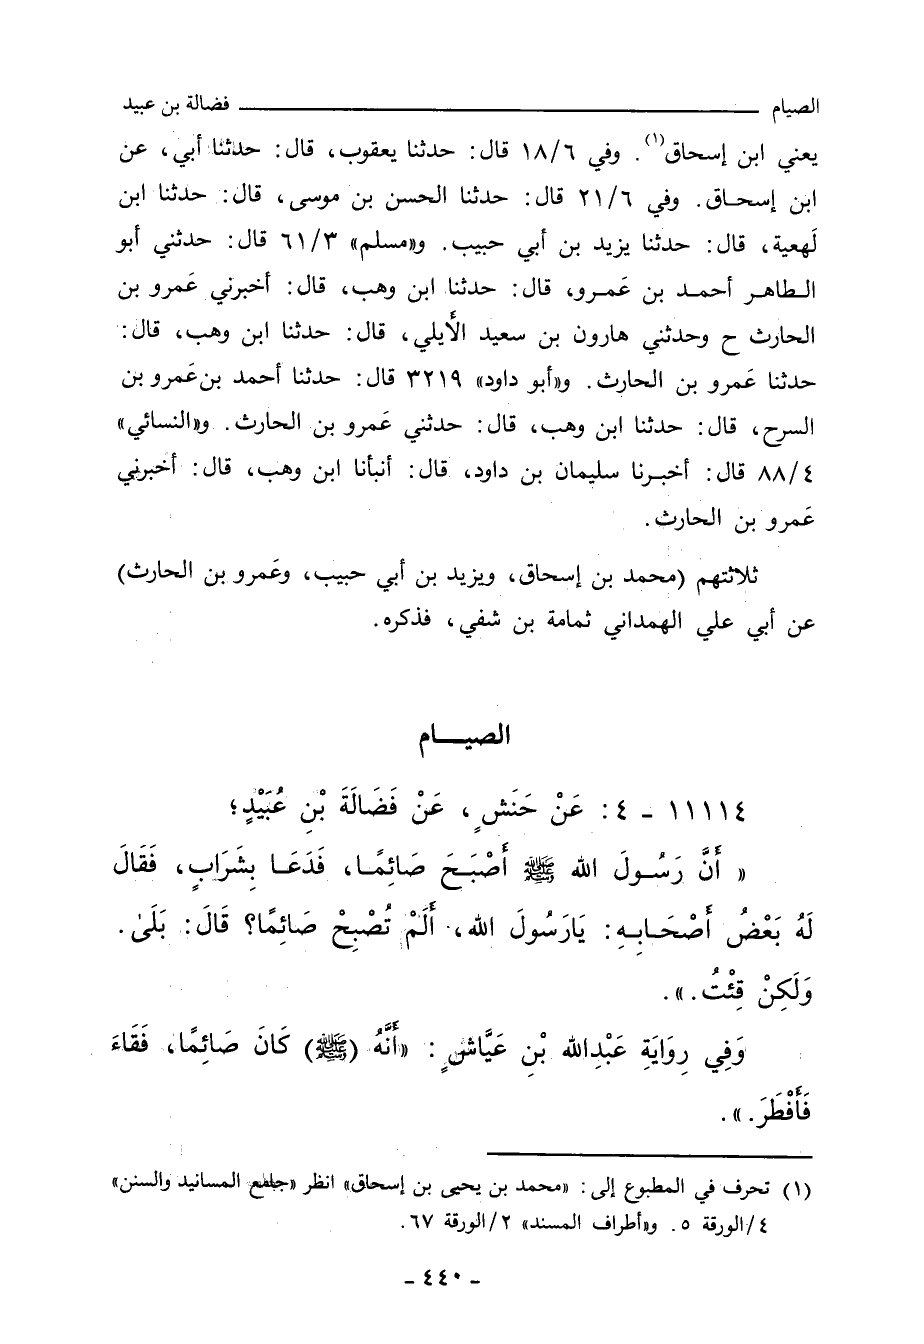 الصيام ـــــــــــــــــــــــــــــــــــــــــــــــ فضالة بن عبيد
يعني ابن إسحاق(١). وفي ١٨/٦ قال: حدثنا يعقوب، قال: حدثنا أبي، عن
ابن إسحاق. وفي ٢١/٦ قال: حدثنا الحسن بن موسى، قال: حدثنا ابن
لَهعية، قال: حدثنا يزيد بن أبي حبيب. و«مسلم» ٦١/٣ قال: حدثني أبو
الطاهر أحمد بن عَمرو، قال: حدثنا ابن وهب، قال: أخبرني عَمرو بن
الحارث ح وحدثني هارون بن سعيد الأَيلي، قال: حدثنا ابن وهب، قال:
حدثنا عَمرو بن الحارث. و«أبو داود» ٣٢١٩ قال: حدثنا أحمد بن عَمرو بن
السرح، قال: حدثنا ابن وهب، قال: حدثني عَمرو بن الحارث. و«النسائي»
٨٨/٤ قال: أخبرنا سليمان بن داود، قال: أنبأنا ابن وهب، قال: أخبرني
عَمرو بن الحارث.
ثلاثتهم (محمد بن إسحاق، ويزيد بن أبي حبيب، وعَمرو بن الحارث)
عن أبي علي الهمداني ثمامة بن شفي، فذكره.
الصيام
١١١١٤ - ٤: عَنْ حَنَشٍ، عَنْ فَضَالَةَ بْنِ عُبَيْدٍ؛
« أَنَّ رَسُولَ الله ﷺ أَصْبَحَ صَائِمًا، فَدَعَا بِشَرَابٍ، فَقَالَ
لَهُ بَعْضُ أَصْحَابِهِ: يَارَسُولَ الله، أَلَمْ تُصْبِحْ صَائِمًا؟ قَالَ: بَلَىٰ.
وَلَكِنْ قِئْتُ.».
وَفِي رِوَايَةِ عَبْدِالله بْنِ عَيَّاشٍ: «أَنَّهُ (ﷺ) كَانَ صَائِمًا، فَقَاءَ
فَأَفْطَرَ.».
(١) تحرف في المطبوع إلى: «محمد بن يحيى بن إسحاق» انظر «جامع المسانيد والسنن»
٤/الورقة ٥. و«أطراف المسند» ٢/الورقة ٦٧.
- ٤٤٠ -